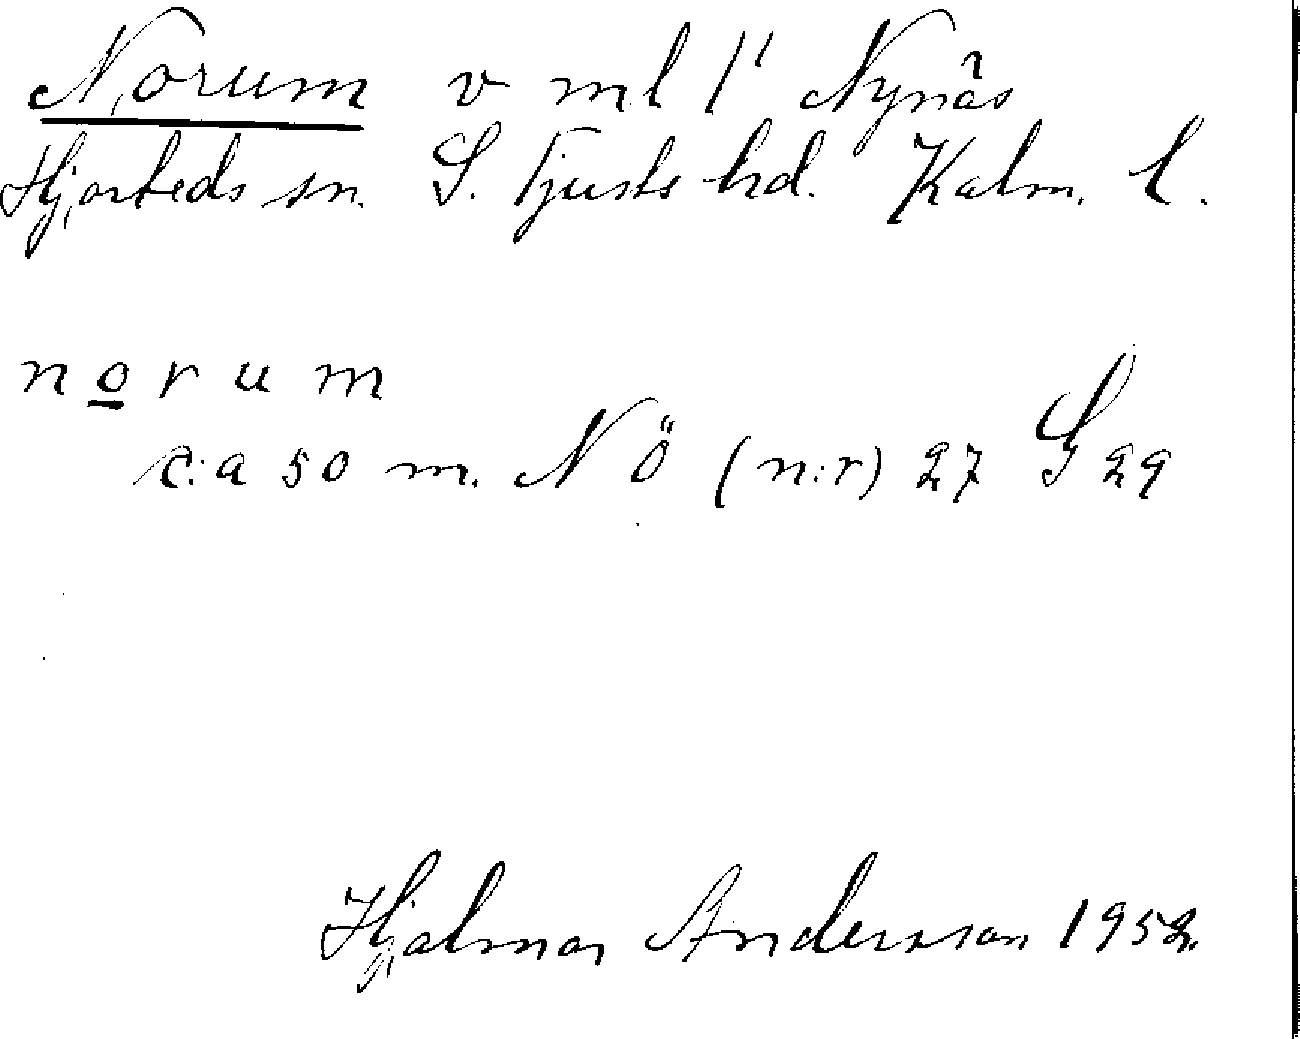 Norum v ml 1" Nynäs
Hjorteds sn. S. Tjusts hd. Kalm. l.
norum
c:a 50 m. NÖ (n:r) 27 G 29
Hjalmar Andersson 1952